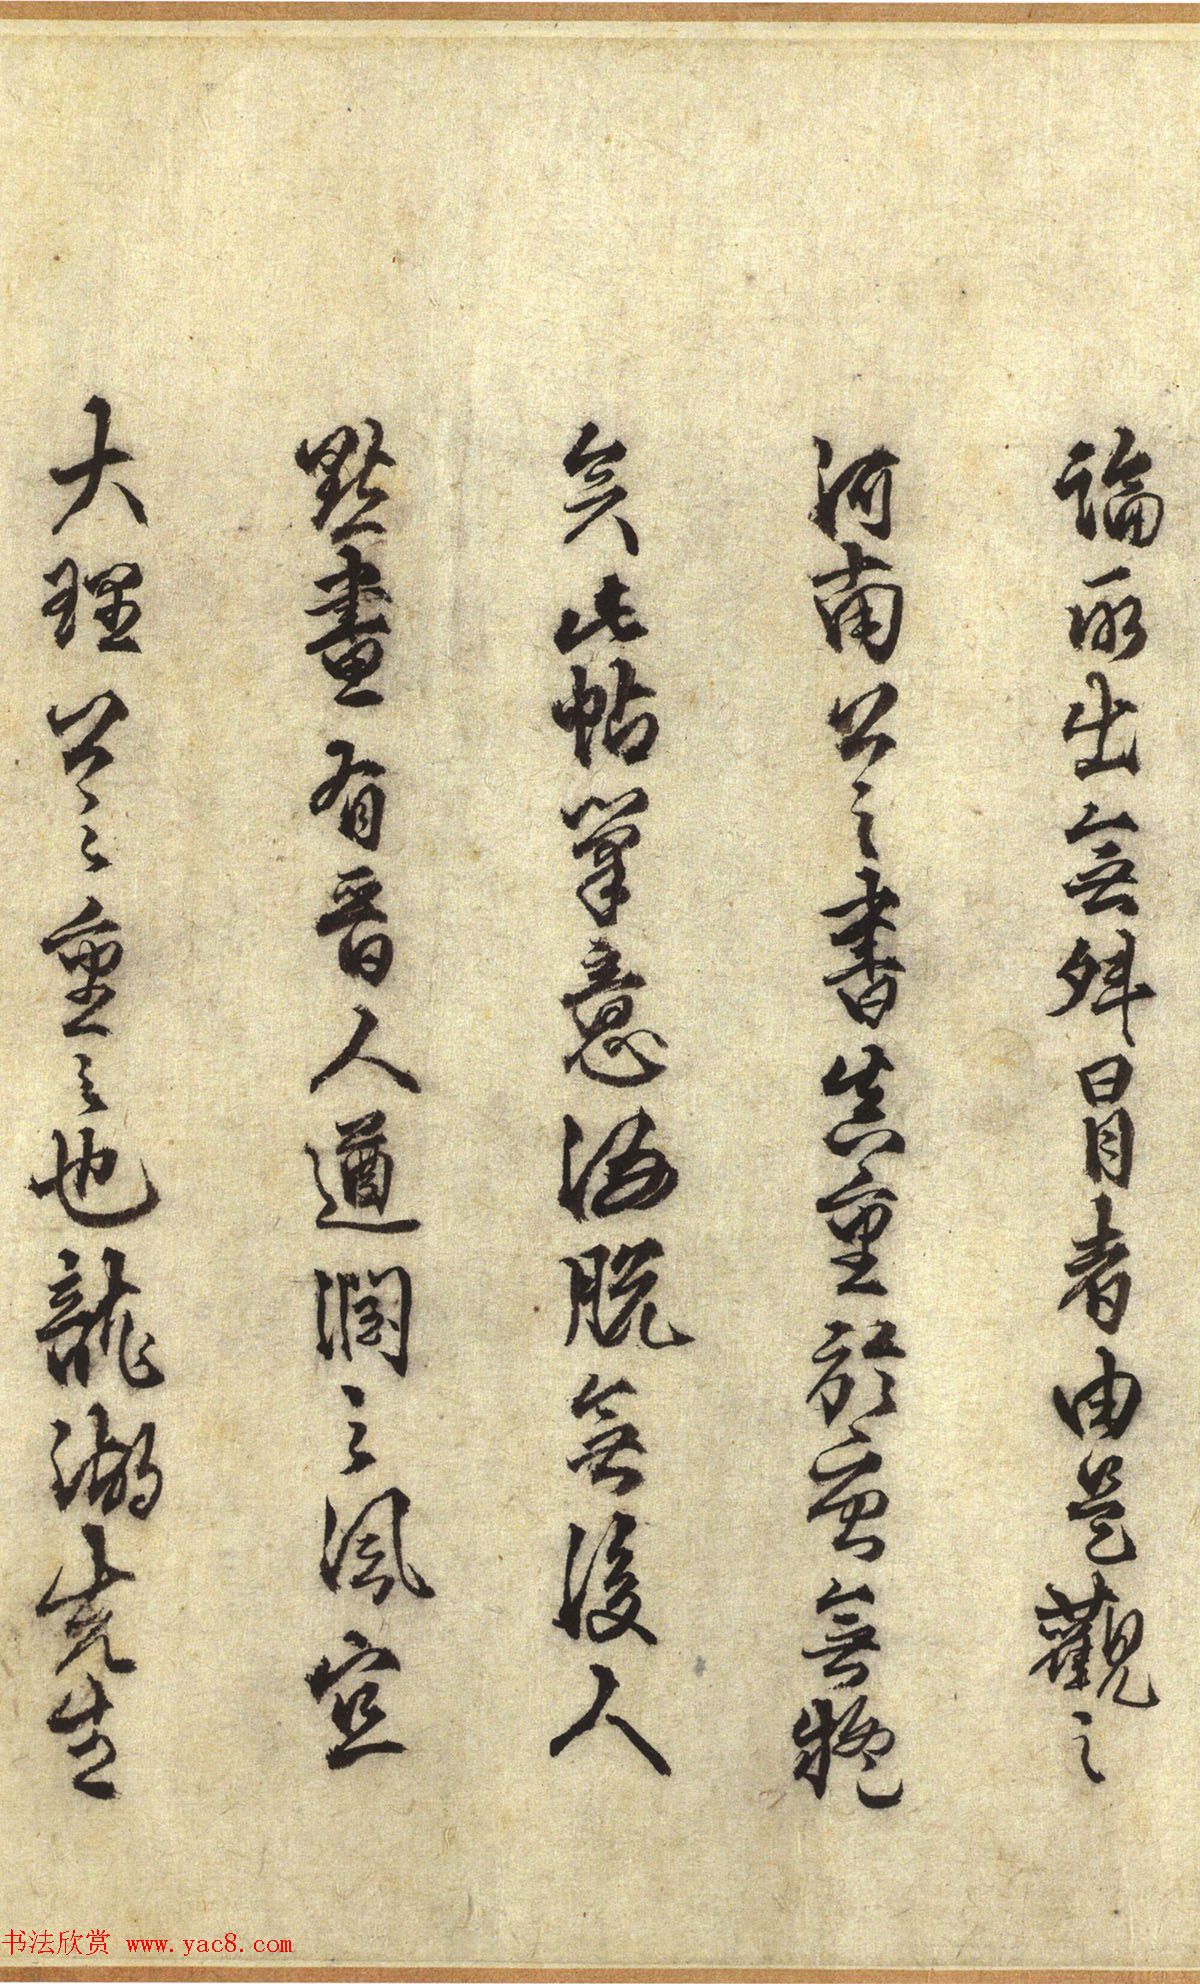 論所出無舛冒者由是觀之
河南公之書貴重於唐無疑
矣此帖筆意洒脫無後人
點畫有晉人遒潤之風宜
大理公之重之也龍湖先生
书法欣赏 www.yac8.com